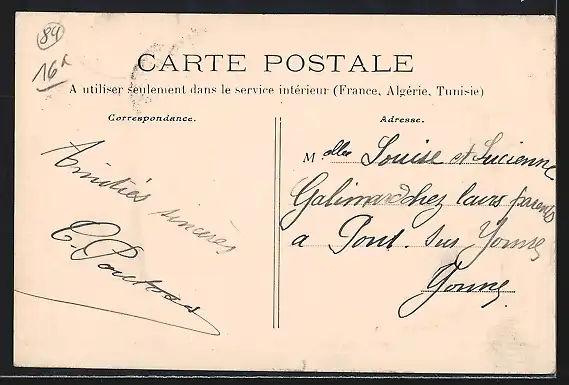 89
16
CARTE POSTALE
A utiliser seulement dans le service intérieur (France, Algérie, Tunisie)
Correspondance.
Amitiés
sincères
Adresse.
Melles Louise et Lucienne
Galimard chez leurs parents
a Pont sur Yonne
Yonne